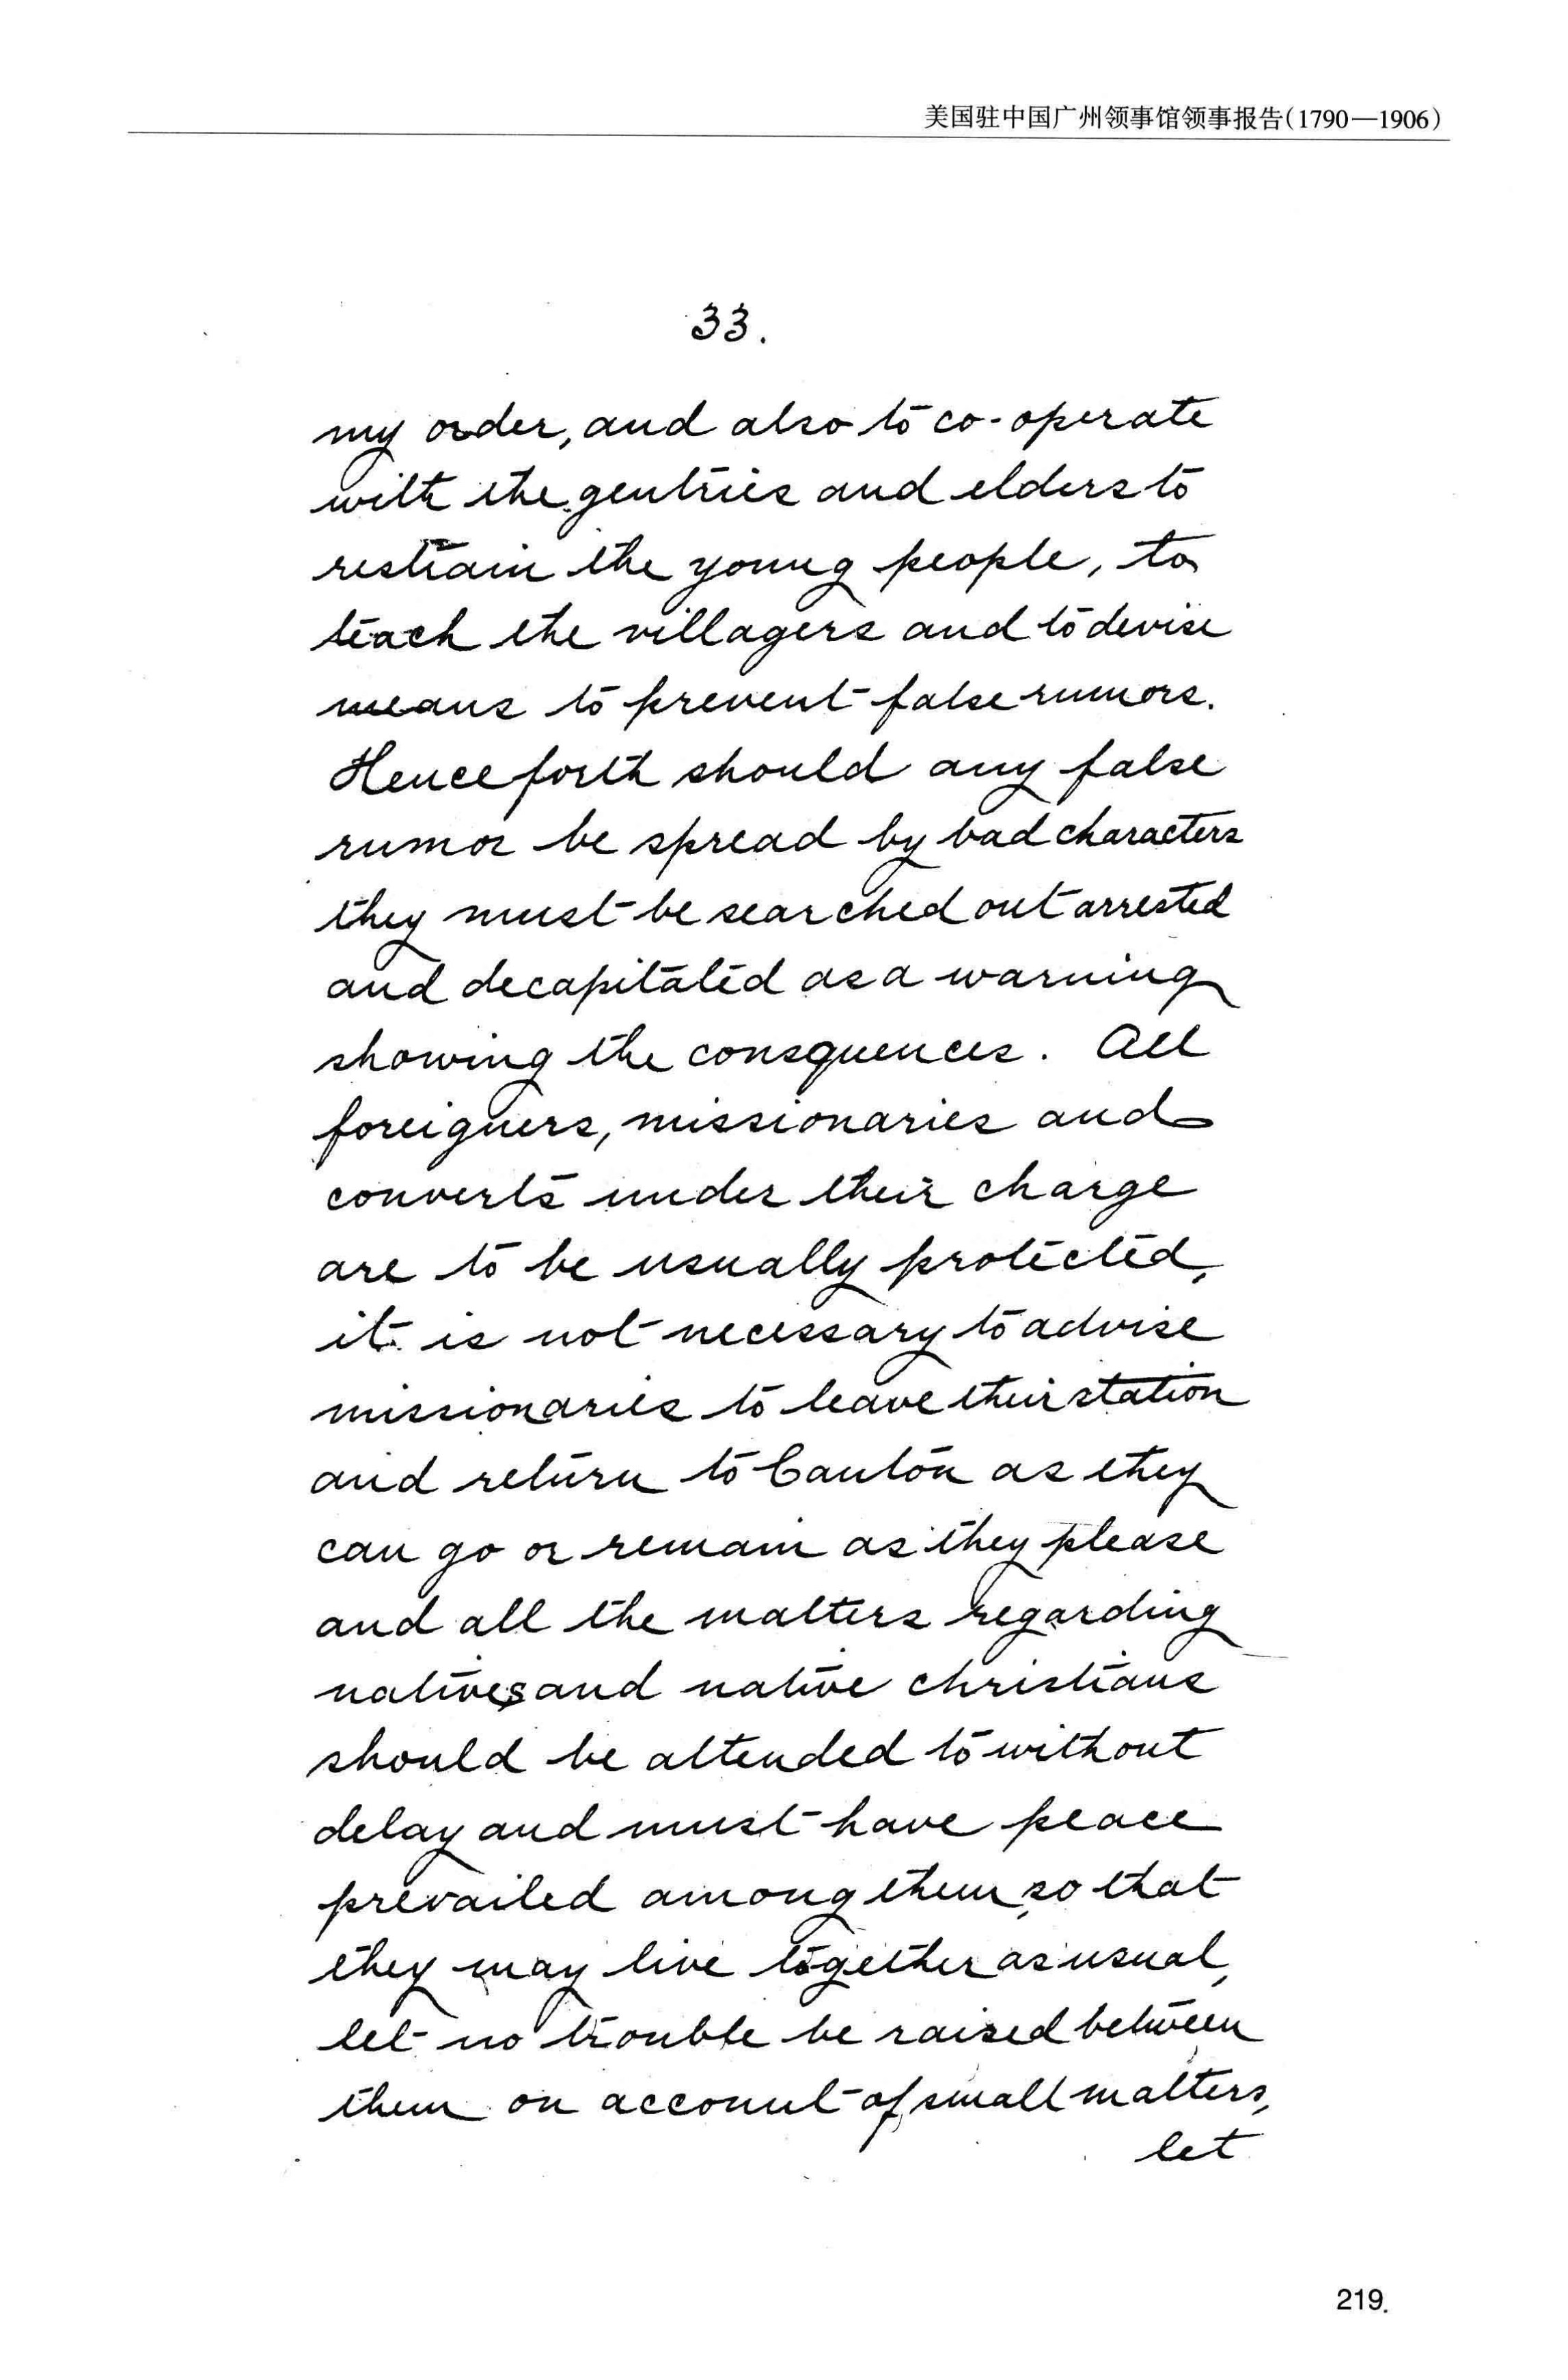 美国驻中国广州领事馆领事报告(1790—1906)
33.
my order, and also to co-operate
with the gentries and elders to
restrain the young people, to
teach the villagers and to devise
means to prevent false rumors.
Henceforth should any false
rumor be spread by bad characters
they must be searched out arrested
and decapitated as a warning
showing the consquences. All
foreigners, missionaries and
converts under their charge
are to be usually protected,
it is not necessary to advise
missionaries to leave their station
and return to Canton as they
can go or remain as they please
and all the matters regarding
natives and native christians
should be attended to without
delay and must have peace
prevailed among them, so that
they may live together as usual,
let no trouble be raised between
them on account of small matters,
let
219.